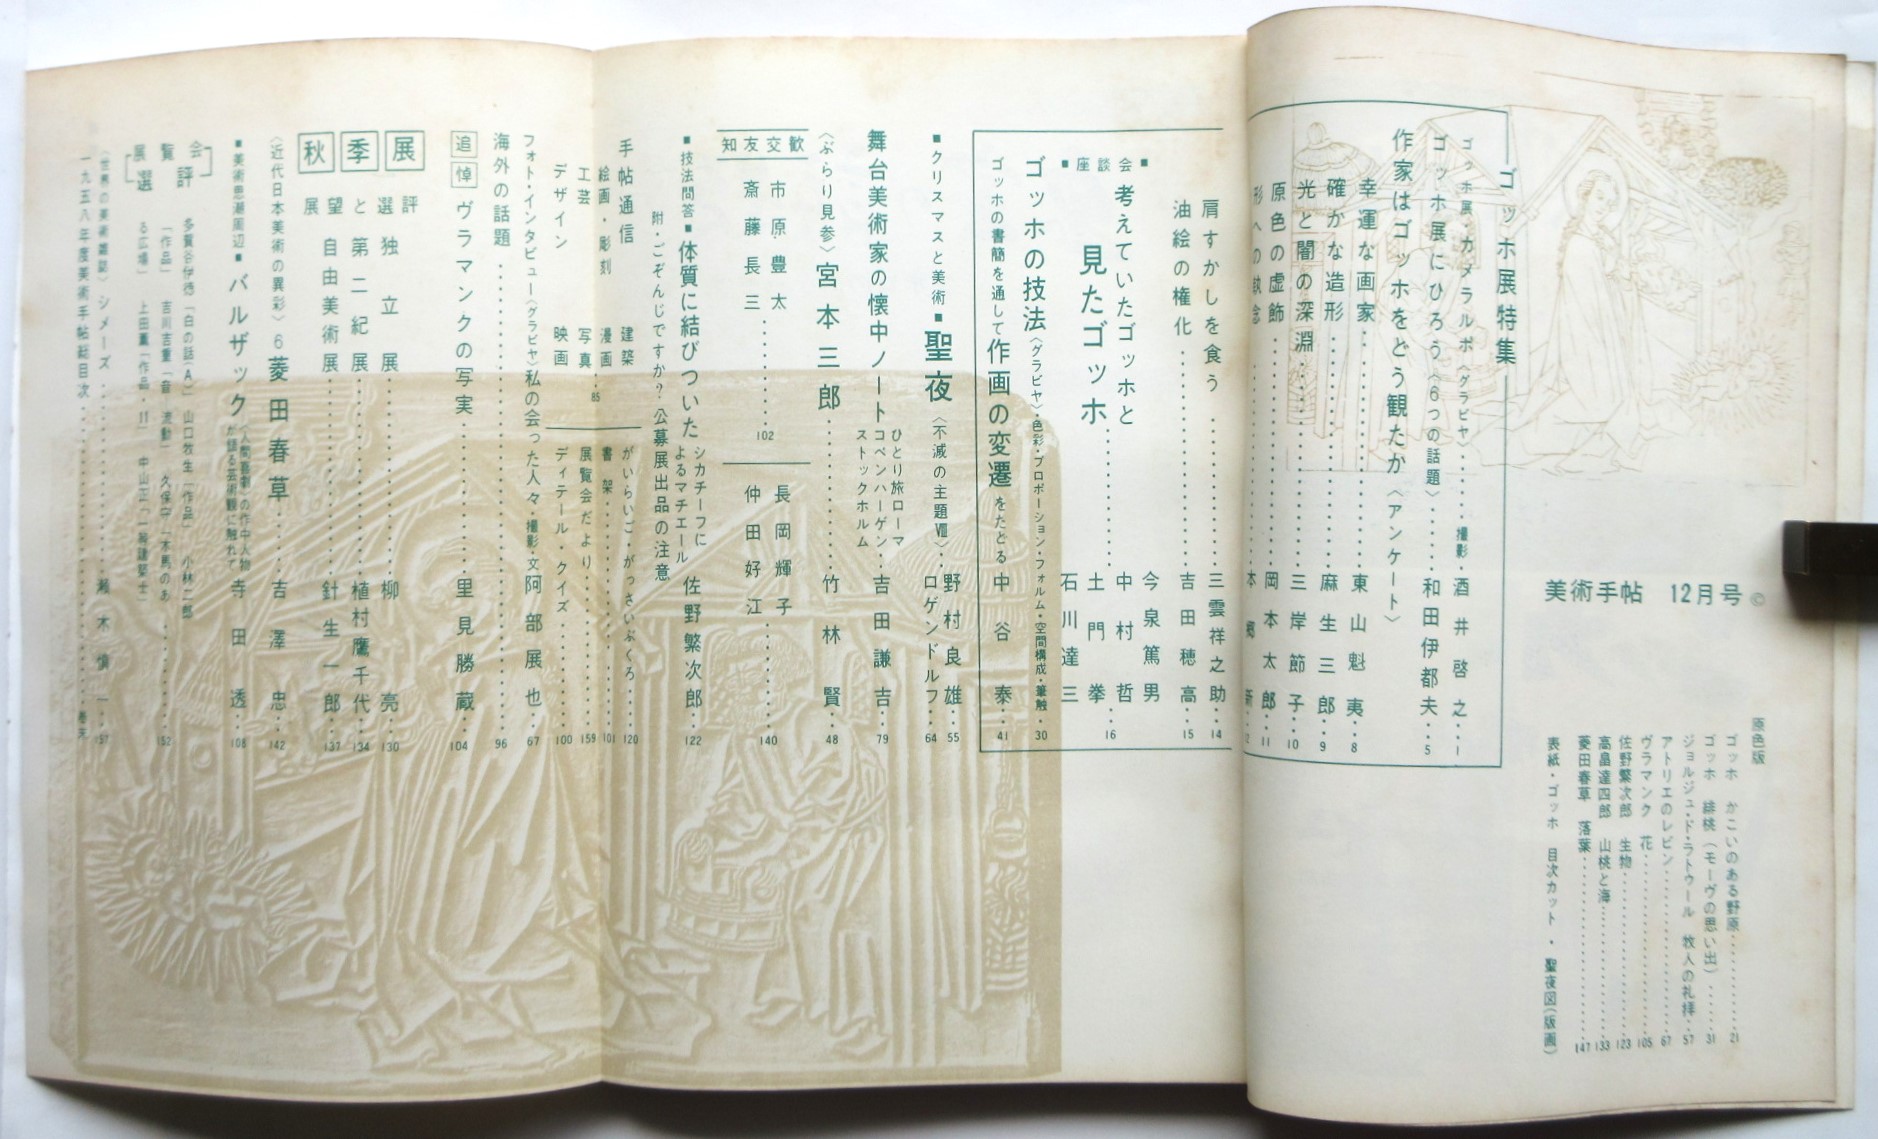 美術手帖 12月号 ©
原色版
ゴッホ かこいのある野原 21
ゴッホ 緋桃(モーヴの思い出) 31
ジョルジュ・ド・ラトゥール 牧人の礼拝 57
アトリエのレビン 67
ヴラマンク 花 105
佐野繁次郎 生物 123
高畠達四郎 山桃と海 133
菱田春草 落葉 147
表紙・ゴッホ 目次カット・聖夜図(版画)
ゴッホ展特集
ゴッホ展・カメラルポ〈グラビヤ〉 撮影・酒井啓之 1
ゴッホ展にひろう〈6つの話題〉 和田伊都夫 5
作家はゴッホをどう観たか〈アンケート〉
幸運な画家 東山魁夷 8
確かな造形 麻生三郎 9
光と闇の深淵 三岸節子 10
原色の虚飾 岡本太郎 11
形への執念 本郷新
肩すかしを食う 三雲祥之助 14
油絵の権化 吉田穂高 15
■座談会■
考えていたゴッホと
見たゴッホ 16
今泉篤男
中村哲
土門拳
石川達三
ゴッホの技法〈グラビヤ〉・色彩・プロポーション・フォルム・空間構成・筆触 30
ゴッホの書簡を通して作画の変遷をたどる 中谷泰 41
■クリスマスと美術■聖夜〈不滅の主題Ⅷ〉 野村良雄 55
ロゲンドルフ 64
舞台美術家の懐中ノート
ひとり旅ローマ
コペンハーゲン
ストックホルム
吉田謙吉 79
〈ぶらり見参〉宮本三郎 竹林賢 48
知友交歓
市原豊太
斎藤長三 102
長岡輝子
仲田好江 140
■技法問答■体質に結びついた
シカチーフに
よるマチエール
佐野繁次郎 122
附・ごぞんじですか? 公募展出品の注意
手帖通信
絵画・彫刻 建築
工芸 漫画
デザイン 写真
映画 85
がいらいご・がっさいぶくろ 120
書架 101
展覧会だより 159
ディテール・クイズ 100
フォト・インタビュー〈グラビヤ〉私の会った人々・撮影・文 阿部展也 67
海外の話題 96
追悼 ヴラマンクの写実 里見勝蔵 104
秋季展
展望と選評
独立展 柳亮 130
第二紀展 植村鷹千代 134
自由美術展 針生一郎 137
〈近代日本美術の異彩〉6 菱田春草 吉澤忠 142
■美術思潮周辺■バルザック
〈人間喜劇〉の作中人物
が語る芸術観に触れて
寺田透 108
展覧会選評
多賀谷伊徳「白の話A」 山口牧生「作品」 小林二郎
「作品」 吉川吉重「音 流動」 久保守「木馬のあ
る広場」 上田薫「作品・11」 中山正「一級建築士」 152
〈世界の美術雑誌〉シメーズ 瀬木慎一 157
一九五八年度美術手帖総目次 巻末